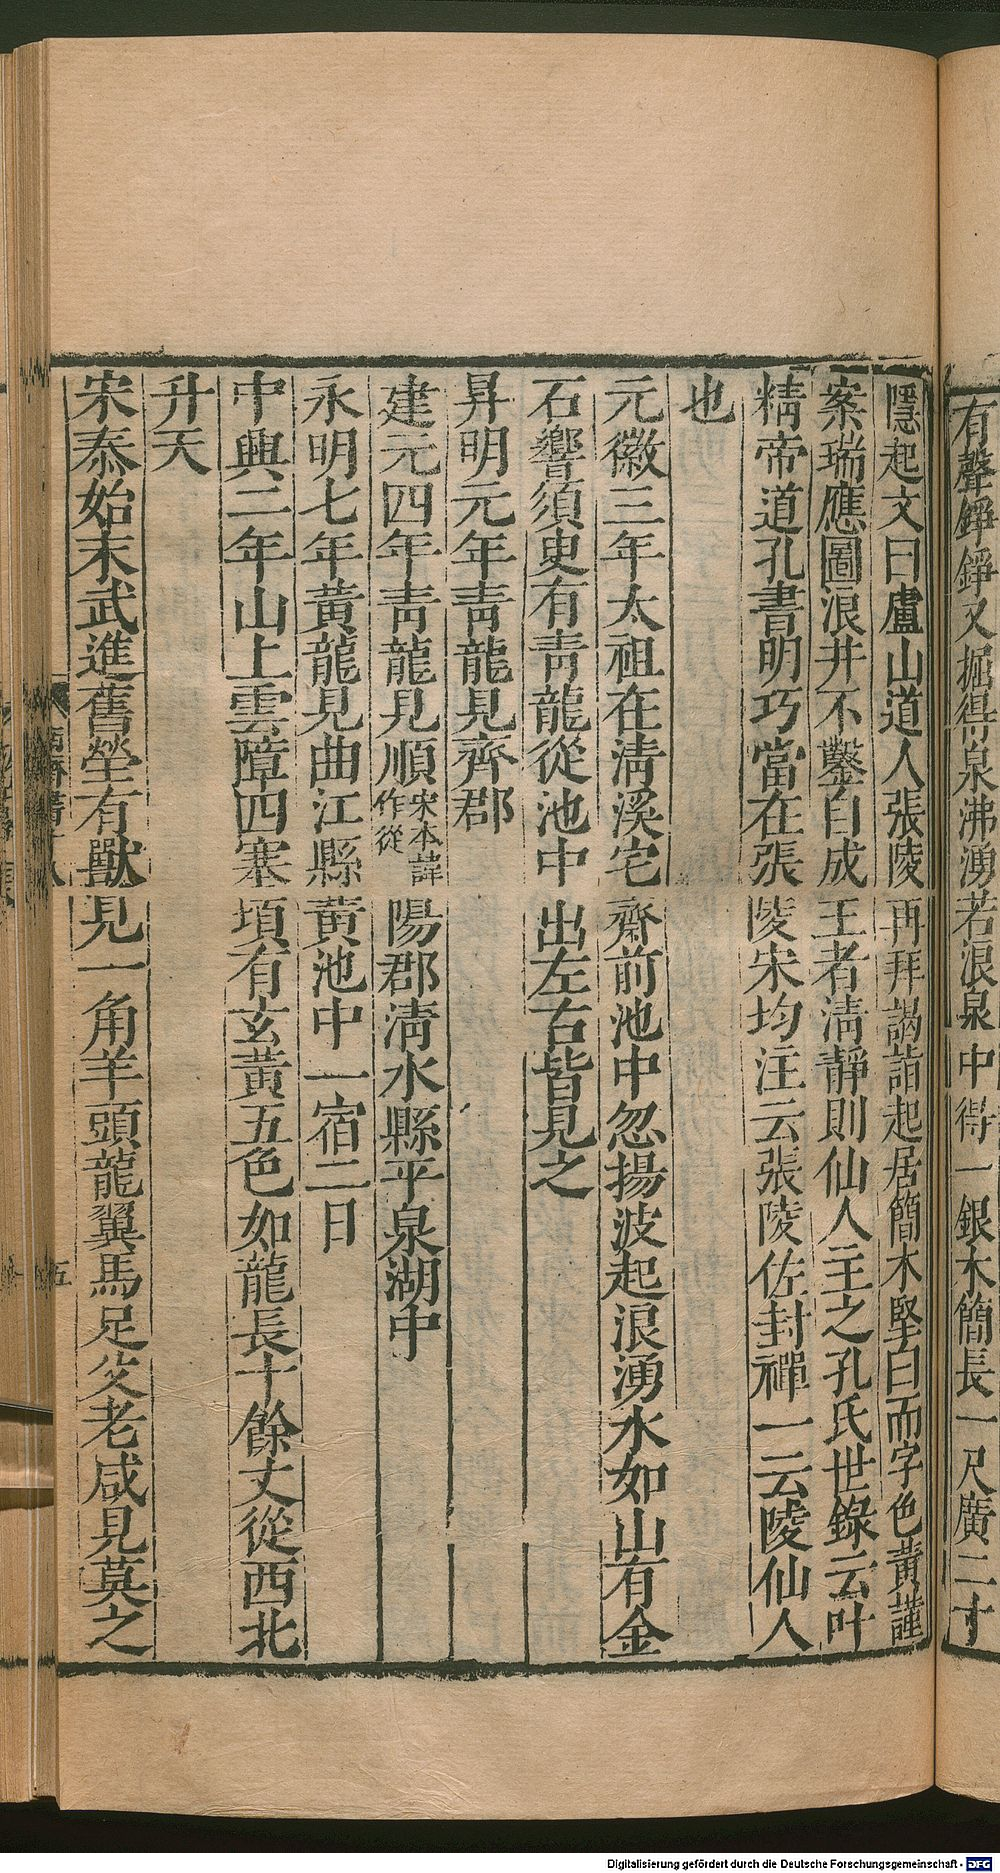 有聲錚錚又掘得泉沸湧若浪泉中得一銀木簡長一尺廣二寸
隱起文曰盧山道人張陵再拜謁詣起居簡木堅白而字色黃謹
案瑞應圖浪井不鑿自成王者清靜則仙人主之孔氏世錄云叶
精帝道孔書明巧當在張陵宋均注云張陵佐封禪一云陵仙人
也
元徽三年太祖在清溪宅齋前池中忽揚波起浪湧水如山有金
石響須史有靑龍從池中出左右皆見之
昇明元年靑龍見齊郡
建元四年靑龍見順宋本諱作從陽郡清水縣平泉湖中
永明七年黃龍見曲江縣黃池中一宿二日
中興二年山上雲障四塞頃有玄黃五色如龍長十餘丈從西北
升天
宋泰始末武進舊塋有獸見一角羊頭龍翼馬足父老咸見莫之
五
Digitalisierung gefördert durch die Deutsche Forschungsgemeinschaft - DFG